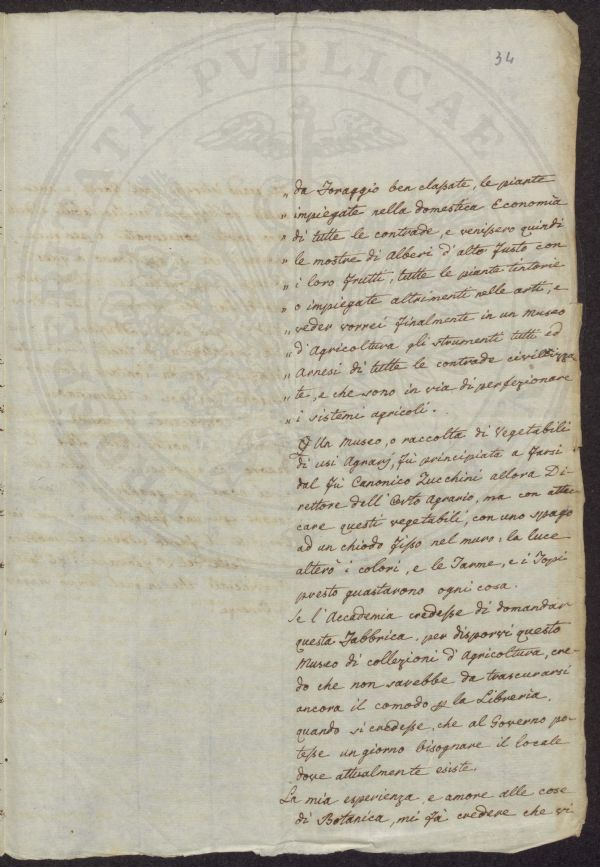 34
„ da Foraggio ben classate, le piante
„ impiegate nella domestica Economia
„ di tutte le contrade, e venissero quindi
„ le mostre di Alberi d'alto Fusto con
„ i loro Frutti; tutte le piante tintorie
„ o impiegate altrimenti nelle arti, e
„ veder vorrei finalmente in un Museo
„ d'Agricoltura gli strumenti tutti ed
„ Arnesi di tutte le contrade civilizza-
„ te, e che sono in via di perfezionare
„ i sistemi agricoli.
Un Museo, o raccolta di Vegetabili
di usi Agrarj, fù principiato a farsi
dal fù Canonico Zucchini allora Di-
rettore dell'Orto Agrario, ma con attac-
care questi vegetabili, con uno spago
ad un chiodo fisso nel muro: la luce
alterò i colori, e le Tarme, e i Topi
presto guastarono ogni cosa.
Se l'Accademia credesse di domandar
questa Fabbrica, per disporvi questo
Museo di collezioni d'Agricoltura, cre-
do che non sarebbe da trascurarsi
ancora il comodo p la Libreria,
quando si credesse, che al Governo po-
tesse un giorno bisognare il locale
dove attualmente esiste.
La mia esperienza, e amore alle cose
di Botanica, mi fà credere che vi
PUBLICAE